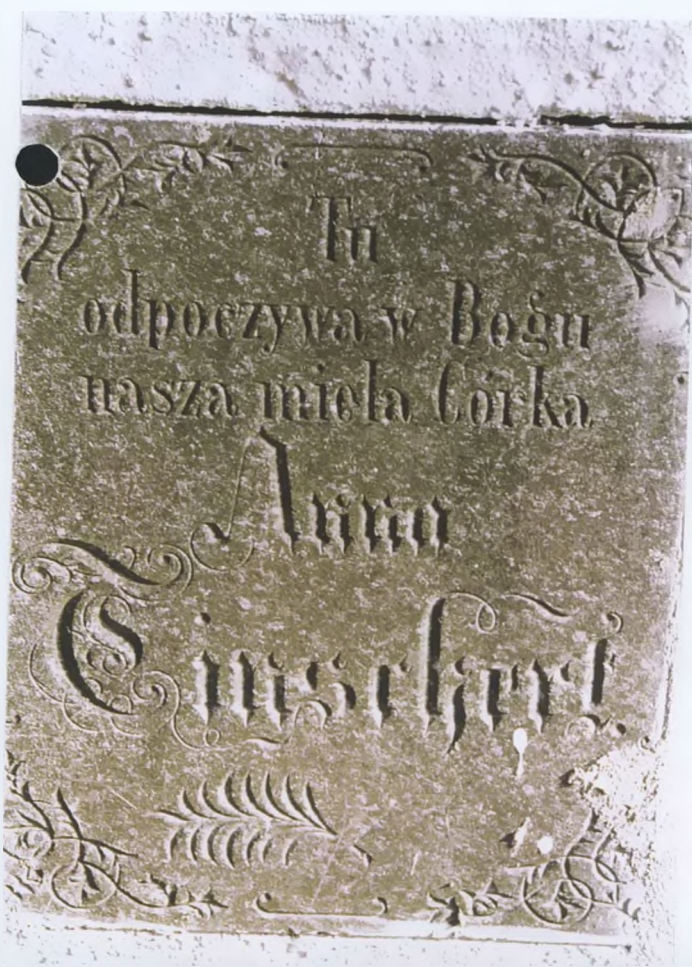 Tu
odpoczywa w Bogu
nasza mieła Córka
Anna
Tinschert.